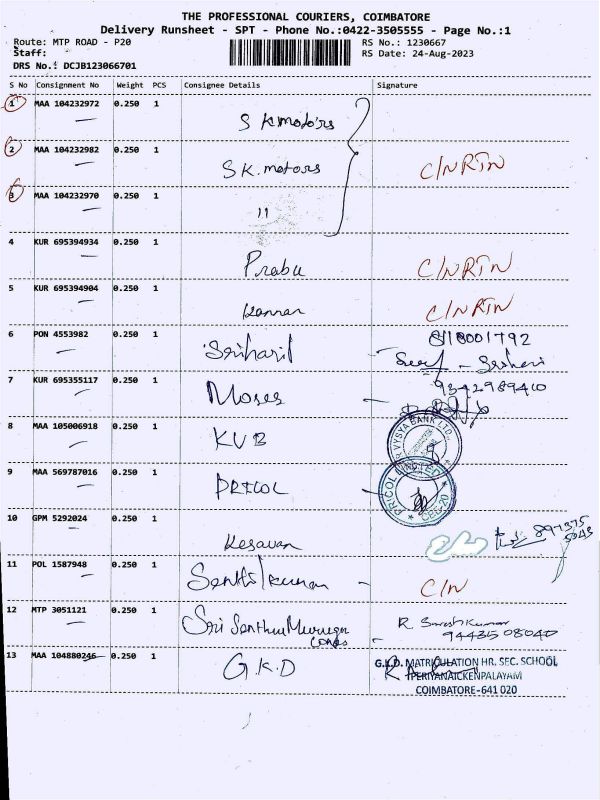 THE PROFESSIONAL COURIERS, COIMBATORE
Delivery Runsheet - SPT - Phone No.:0422-3505555 - Page No.:1
Route: MTP ROAD - P20 RS No.: 1230667
Staff: RS Date: 24-Aug-2023
DRS No.: DCJB123066701
S No Consignment No Weight PCS Consignee Details Signature
1 MAA 104232972 0.250 1 S K motors
2 MAA 104232982 0.250 1 S K. motors C/NRTN
3 MAA 104232970 0.250 1 11
4 KUR 695394934 0.250 1 Prabu C/NRTN
5 KUR 695394904 0.250 1 Kannan C/NRTN
6 PON 4553982 0.250 1 Srihari 8118001792
7 KUR 695355117 0.250 1 Moses 9342989410
8 MAA 105006918 0.250 1 KVB VYSYA BANK LTD.
9 MAA 569787016 0.250 1 PRICOL PRICOL LIMITED CBE-20
10 GPM 5292024 0.250 1 Kesavan 897375
5043
11 POL 1587948 0.250 1 Senthilkumar C/N
12 MTP 3051121 0.250 1 Sri Senthur Murugan R. Sureshkumar
94435 08040
13 MAA 104880246 0.250 1 G.K.D G.K.D. MATRICULATION HR. SEC. SCHOOL
PERIYANAICKENPALAYAM
COIMBATORE-641 020